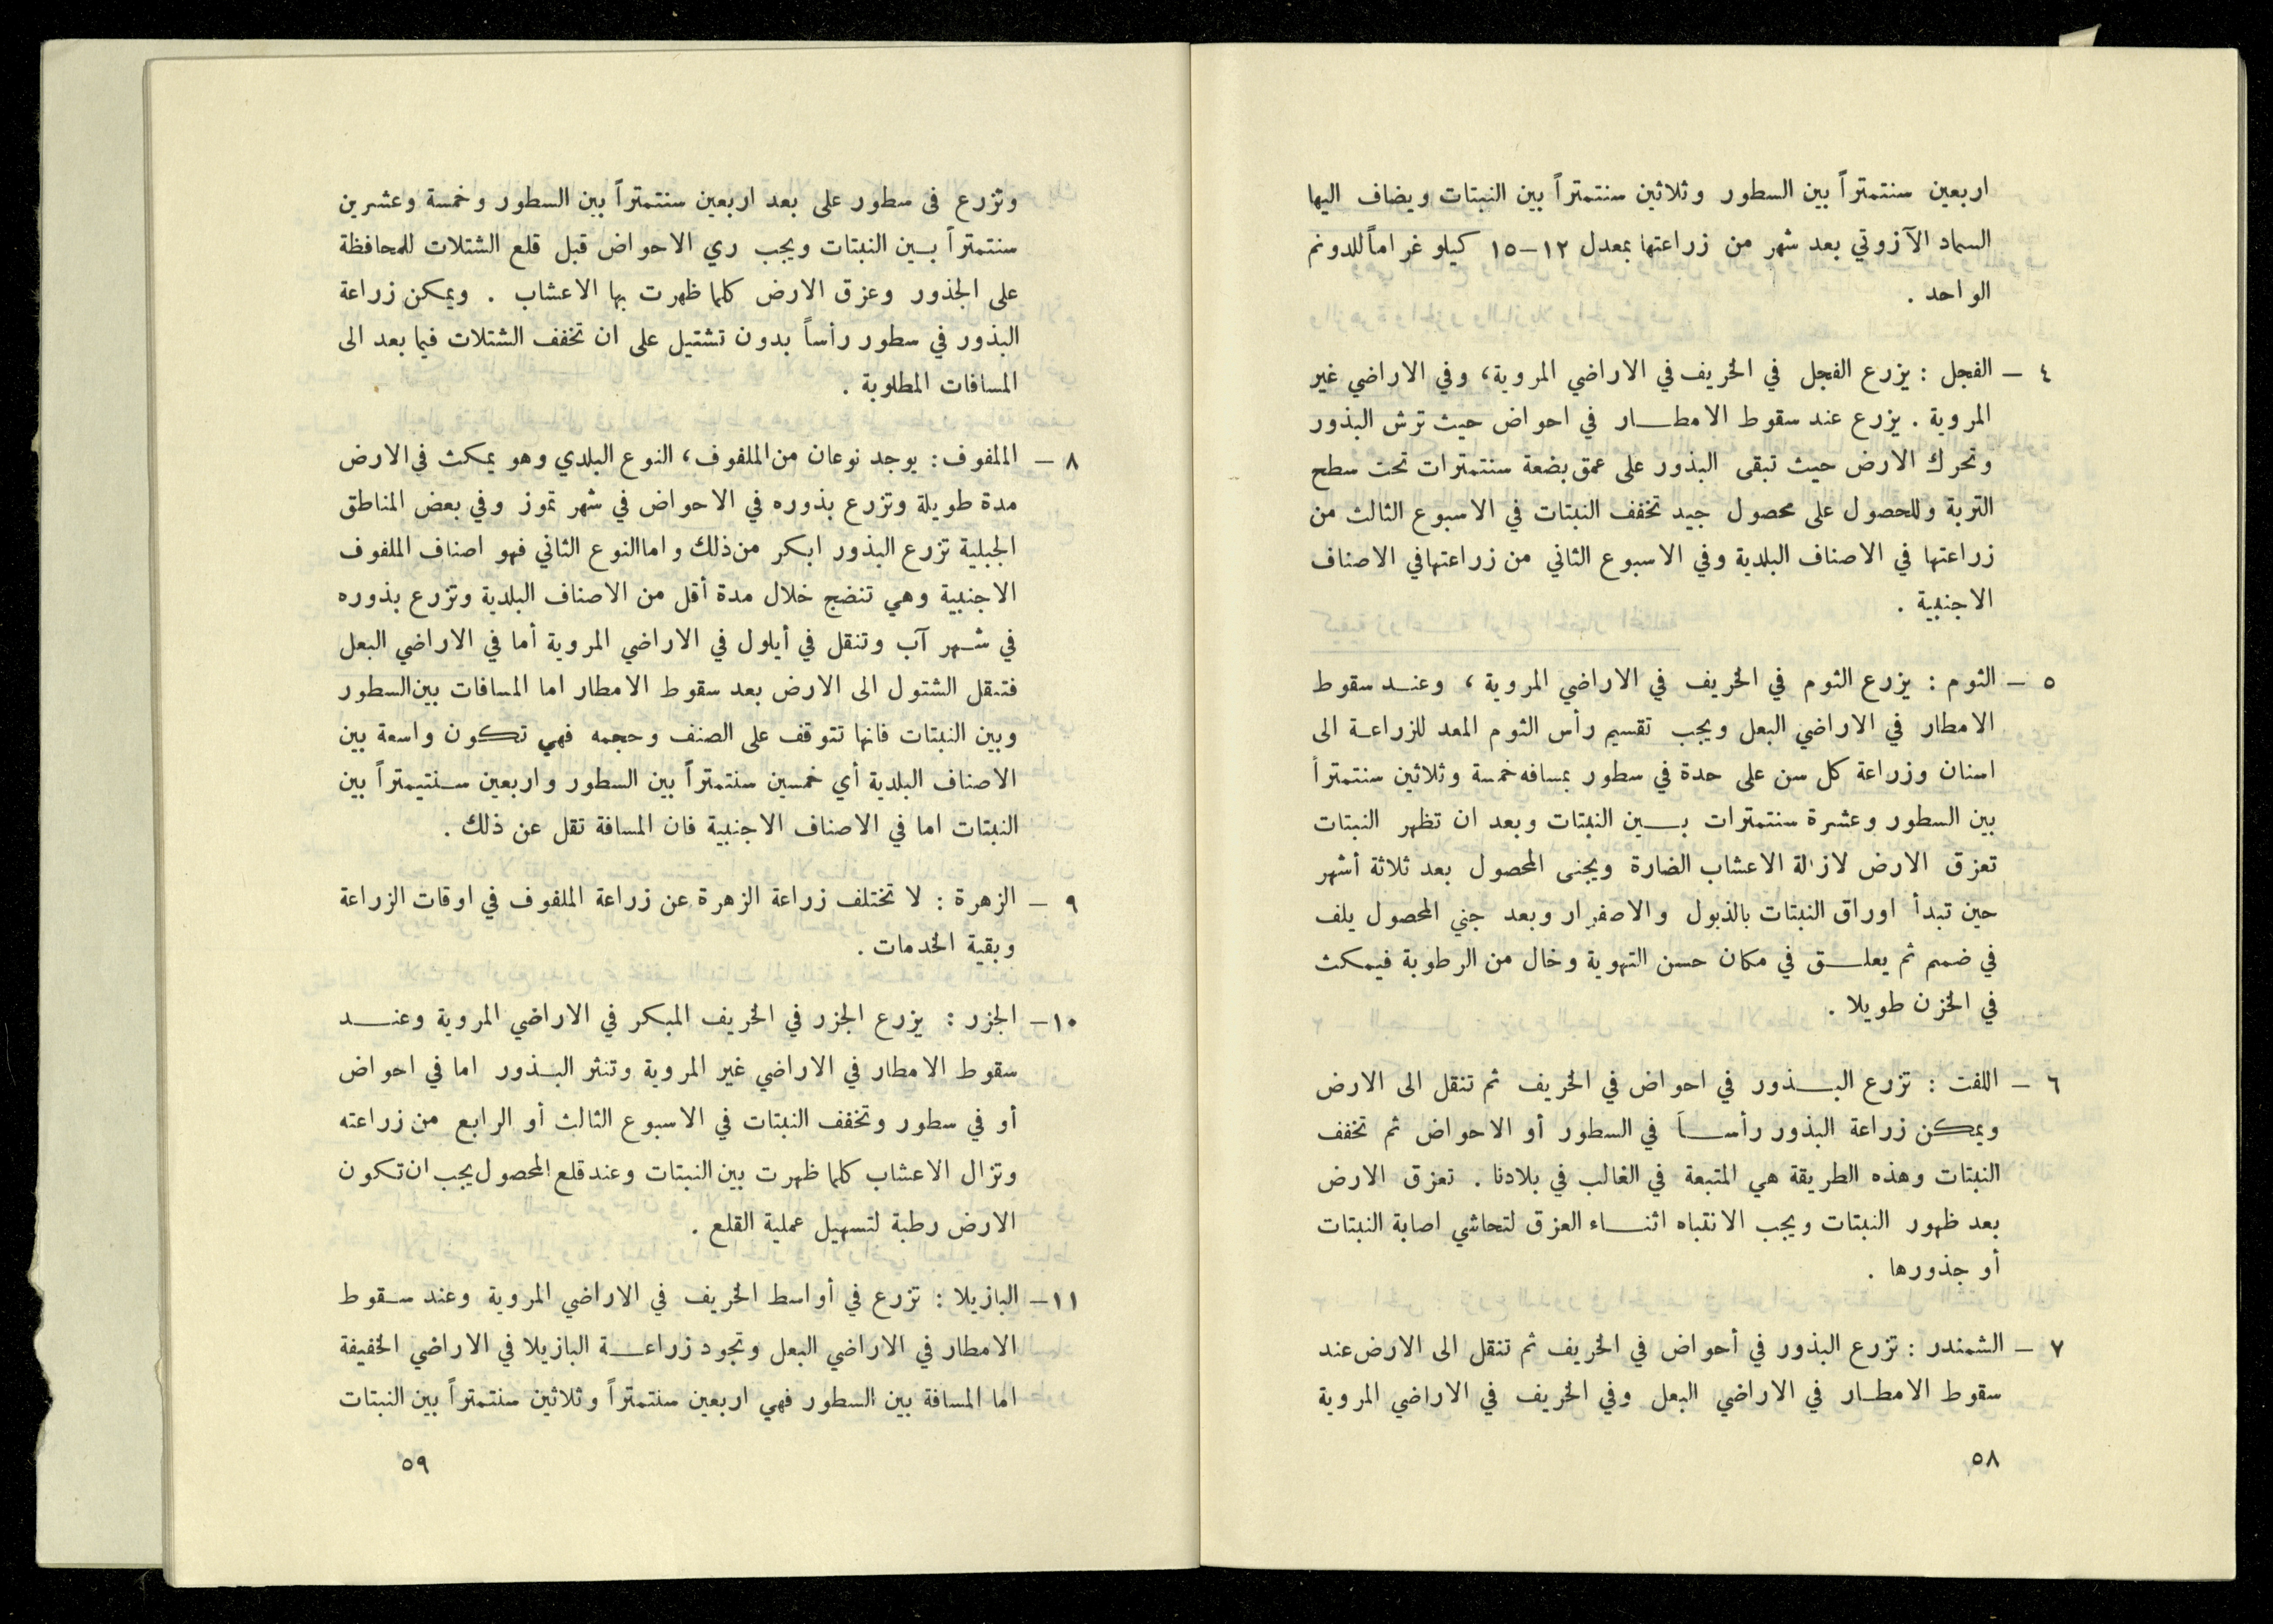 اربعين سنتمتراً بين السطور وثلاثين سنتمتراً بين النبتات ويضاف اليها
السماد الآزوتي بعد شهر من زراعتها بمعدل ١٢-١٥ كيلو غراماً للدونم
الواحد .
٤ - الفجل : يزرع الفجل في الخريف في الاراضي المروية، وفي الاراضي غير
المروية . يزرع عند سقوط الامطار في احواض حيث ترش البذور
وتحرك الارض حيث تبقى البذور على عمق بضعة سنتمترات تحت سطح
التربة وللحصول على محصول جيد تخفف النبتات في الاسبوع الثالث من
زراعتها في الاصناف البلدية وفي الاسبوع الثاني من زراعتهافي الاصناف
الاجنبية .
٥ - الثوم : يزرع الثوم في الخريف في الاراضي المروية ، وعند سقوط
الامطار في الاراضي البعل ويجب تقسيم رأس الثوم المعد للزراعة الى
اسنان وزراعة كل سن على حدة في سطور بمسافه خمسة وثلاثين سنتمتراً
بين السطور وعشرة سنتمترات بين النبتات وبعد ان تظهر النبتات
تعزق الارض لازالة الاعشاب الضارة ويجنى المحصول بعد ثلاثة أشهر
حين تبدأ اوراق النبتات بالذبول والاصفرار وبعد جني المحصول يلف
في ضمم ثم يعلق في مكان حسن التهوية وخال من الرطوبة فيمكث
في الخزن طويلا .
٦ - اللفت : تزرع البذور في احواض في الخريف ثم تنقل الى الارض
ويمكن زراعة البذور رأساً في السطور أو الاحواض ثم تخفف
النبتات وهذه الطريقة هي المتبعة في الغالب في بلادنا . تعزق الارض
بعد ظهور النبتات ويجب الانتباه اثناء العزق لتحاشي اصابة النبتات
أو جذورها .
٧ - الشمندر : تزرع البذور في أحواض في الخريف ثم تنقل الى الارض عند
سقوط الامطار في الاراضي البعل وفي الخريف في الاراضي المروية
٥٨
وتزرع في سطور على بعد اربعين سنتمتراً بين السطور وخمسة وعشرين
سنتمتراً بين النبتات ويجب ري الاحواض قبل قلع الشتلات للمحافظة
على الجذور وعزق الارض كلما ظهرت بها الاعشاب . ويمكن زراعة
البذور في سطور رأساً بدون تشتيل على ان تخفف الشتلات فيما بعد الى
المسافات المطلوبة .
٨ - الملفوف : يوجد نوعان من الملفوف، النوع البلدي وهو يمكث في الارض
مدة طويلة وتزرع بذوره في الاحواض في شهر تموز وفي بعض المناطق
الجبلية تزرع البذور ابكر من ذلك واما النوع الثاني فهو اصناف الملفوف
الاجنبية وهي تنضج خلال مدة أقل من الاصناف البلدية وتزرع بذوره
في شهر آب وتنقل في أيلول في الاراضي المروية أما في الاراضي البعل
فتنقل الشتول الى الارض بعد سقوط الامطار اما المسافات بين السطور
وبين النبتات فانها تتوقف على الصنف وحجمه فهي تكون واسعة بين
الاصناف البلدية أي خمسين سنتمتراً بين السطور واربعين سنتيمتراً بين
النبتات اما في الاصناف الاجنبية فان المسافة تقل عن ذلك .
٩ - الزهرة : لا تختلف زراعة الزهرة عن زراعة الملفوف في اوقات الزراعة
وبقية الخدمات .
١٠- الجزر : يزرع الجزر في الخريف المبكر في الاراضي المروية وعند
سقوط الامطار في الاراضي غير المروية وتنثر البذور اما في احواض
أو في سطور وتخفف النبتات في الاسبوع الثالث أو الرابع من زراعته
وتزال الاعشاب كلما ظهرت بين النبتات وعند قلع المحصول يجب ان تكون
الارض رطبة لتسهيل عملية القلع .
١١- البازيلا : تزرع في أواسط الخريف في الاراضي المروية وعند سقوط
الامطار في الاراضي البعل وتجود زراعة البازيلا في الاراضي الخفيفة
اما المسافة بين السطور فهي اربعين سنتمتراً وثلاثين سنتمتراً بين النبتات
٥٩